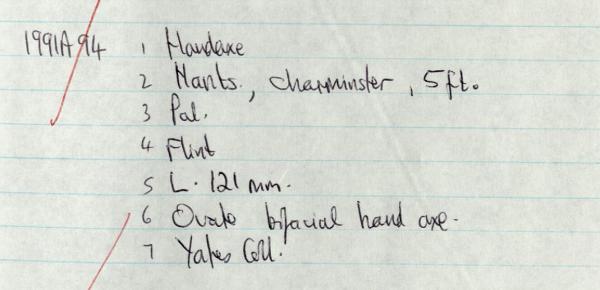 1991A94 1 Handaxe
2 Hants., Charminster, 5ft.
3 Pal.
4 Flint
5 L. 121 mm.
6 Ovate bifacial hand axe.
7 Yates Coll.